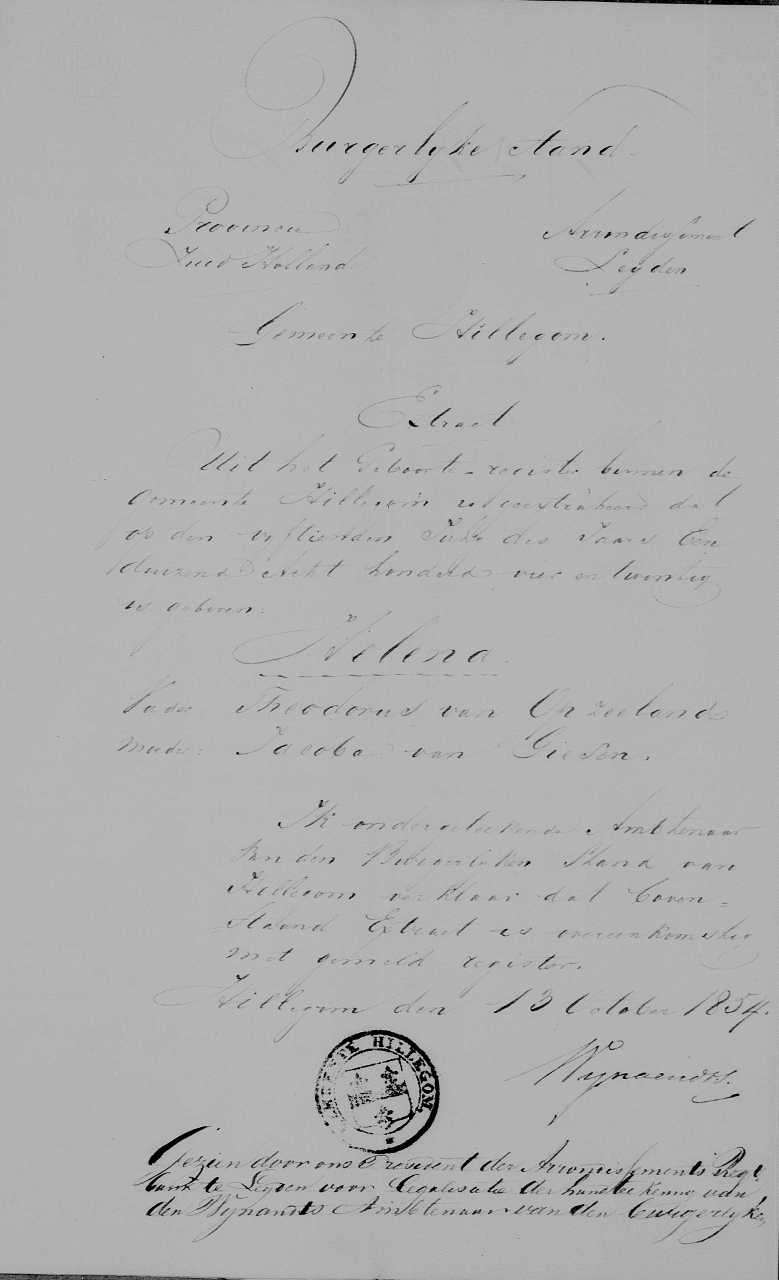 Burgerlyke Stand.
Provincie
Zuid Holland
Arrondissement
Leyden
Gemeente Hillegom.
Extract
Uit het Geboorte-register binnen de
Gemeente Hillegom is geextraheerd dat
op den vyftienden July des Jaars Een
duizend Acht honderd vier en twintig
is geboren:
Helena.
Vader: Theodorus van Opzeeland
Moeder: Jacoba van Giesen.
Ik ondergeteekende Ambtenaar
van den Burgerlyken Stand van
Hillegom verklaar dat boven=
staand Extract is overeenkomstig
met gemeld register.
Hillegom den 13 October 1854.
Wynaendts.
GEMEENTE HILLEGOM
Gezien door ons President der Arrondissements Regt
bank te Leyden voor legalisatie der handteekening van
den Wynandts Ambtenaar van den burgerlyken